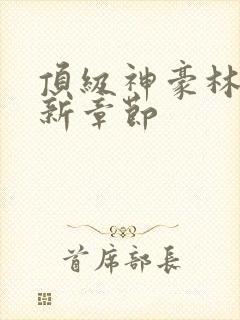 頂級神豪林
新章節
首席部長